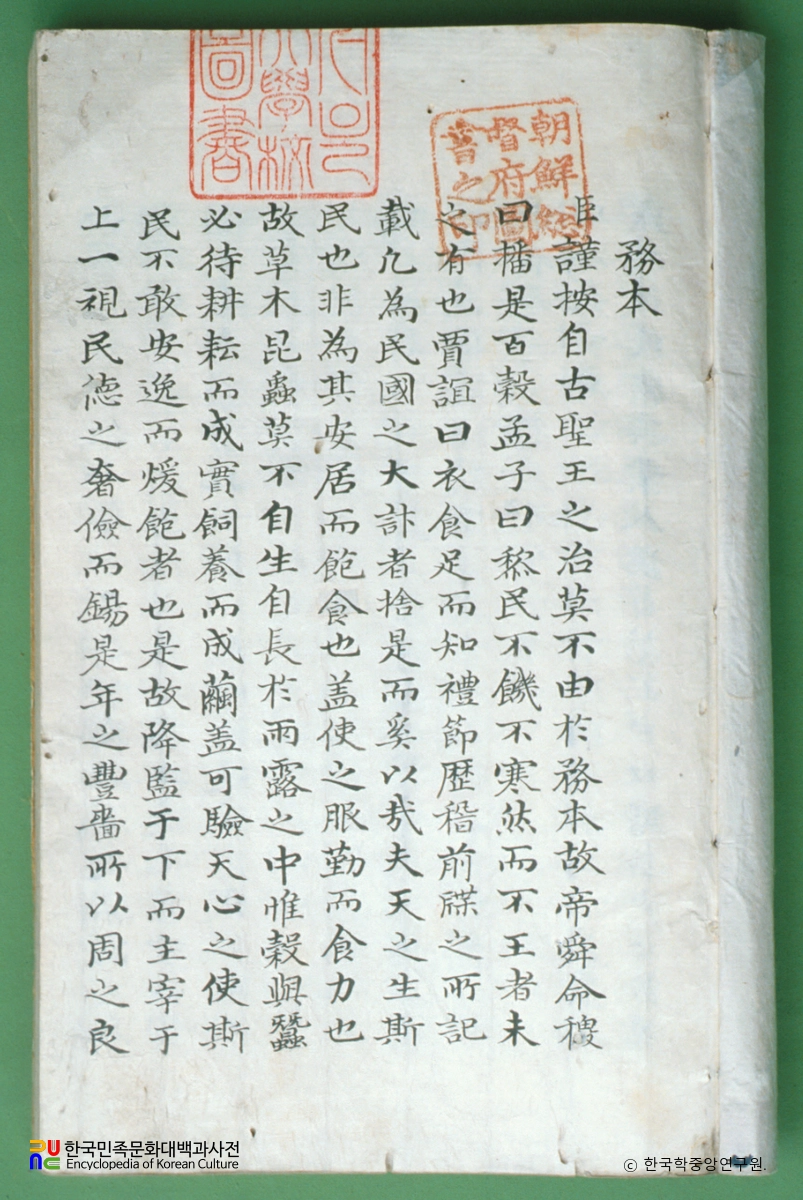 務本
臣謹按自古聖王之治莫不由於務本故帝舜命稷
曰播是百穀孟子曰黎民不饑不寒然而不王者未
之有也賈誼曰衣食足而知禮節歷稽前牒之所記
載凡為民國之大計者捨是而奚以哉夫天之生斯
民也非為其安居而飽食也盖使之服勤而食力也
故草木昆蟲莫不自生自長於雨露之中惟穀與蠶
必待耕耘而成實飼養而成繭盖可驗天心之使斯
民不敢安逸而煖飽者也是故降監于下而主宰于
上一視民德之奢儉而錫是年之豐嗇所以周之良
朝鮮總
督府圖
書之印
大學校
圖書
한국민족문화대백과사전
Encyclopedia of Korean Culture
© 한국학중앙연구원.